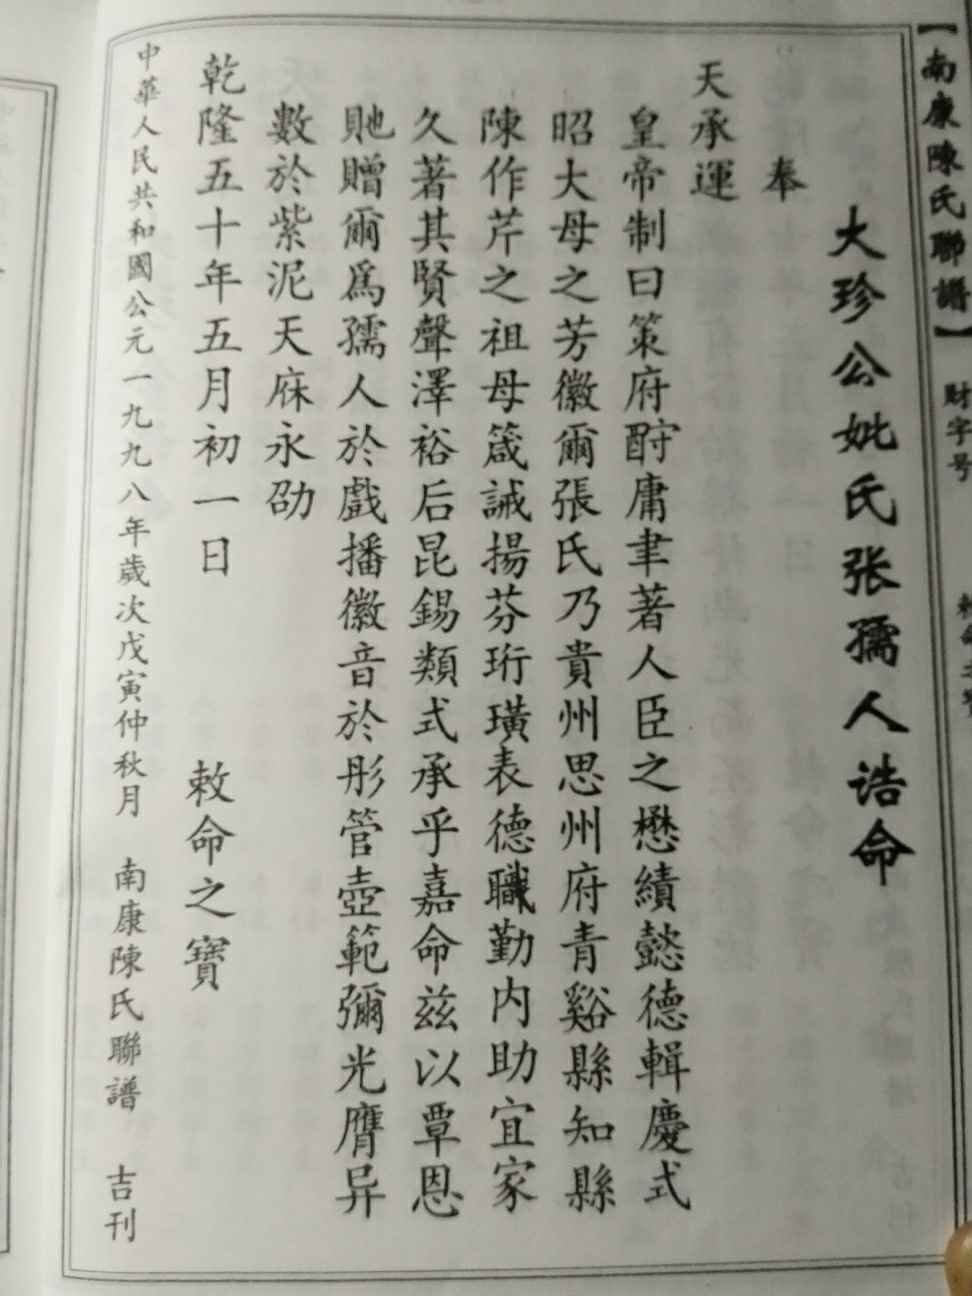 【南康陳氏聯譜】 財字号
大珍公妣氏张孺人诰命
奉
天承運
皇帝制曰策府酧庸聿著人臣之懋績懿德輯慶式
昭大母之芳徽爾張氏乃貴州思州府青谿縣知縣
陳作芹之祖母箴誡揚芬珩璜表德職勤内助宜家
久著其賢聲澤裕后昆錫類式承乎嘉命兹以覃恩
貤贈爾爲孺人於戲播徽音於彤管壼範彌光膺异
數於紫泥天庥永劭
乾隆五十年五月初一日 敕命之寶
中華人民共和國公元一九九八年歲次戊寅仲秋月 南康陳氏聯譜 吉刊